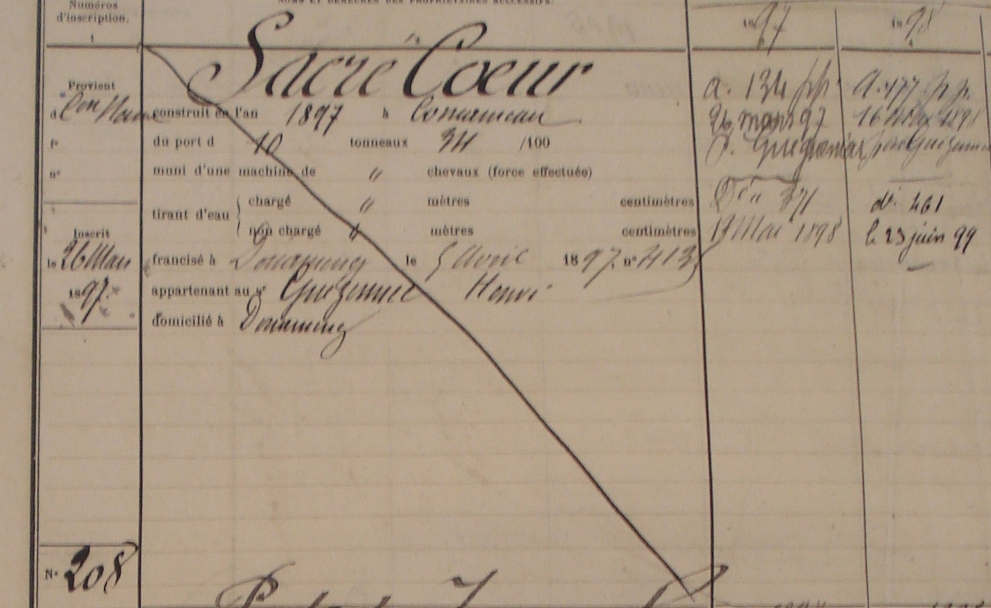 Numéros
d'inscription.
1
NOMS ET DEMEURES DES PROPRIÉTAIRES SUCCESSIFS.
1897
1898
Sacré Coeur
Provient
d
f°
n°
Inscrit
le 26 Mars
1897
construit en l'an 1897 à Concarneau
du port d 10 tonneaux 34 /100
muni d'une machine de " chevaux (force effectuée)
tirant d'eau
chargé " mètres centimètres
non chargé " mètres centimètres
francisé à Douarnenez le 5 Avril 1897 n° 413
appartenant au sr Guezennec Henri
domicilié à Douarnenez
a. 134 pp.
26 mars 97
p.
371
17 Mai 1898
a. 177 p.p.
16
d° 461
le 23 juin 99
N° 208